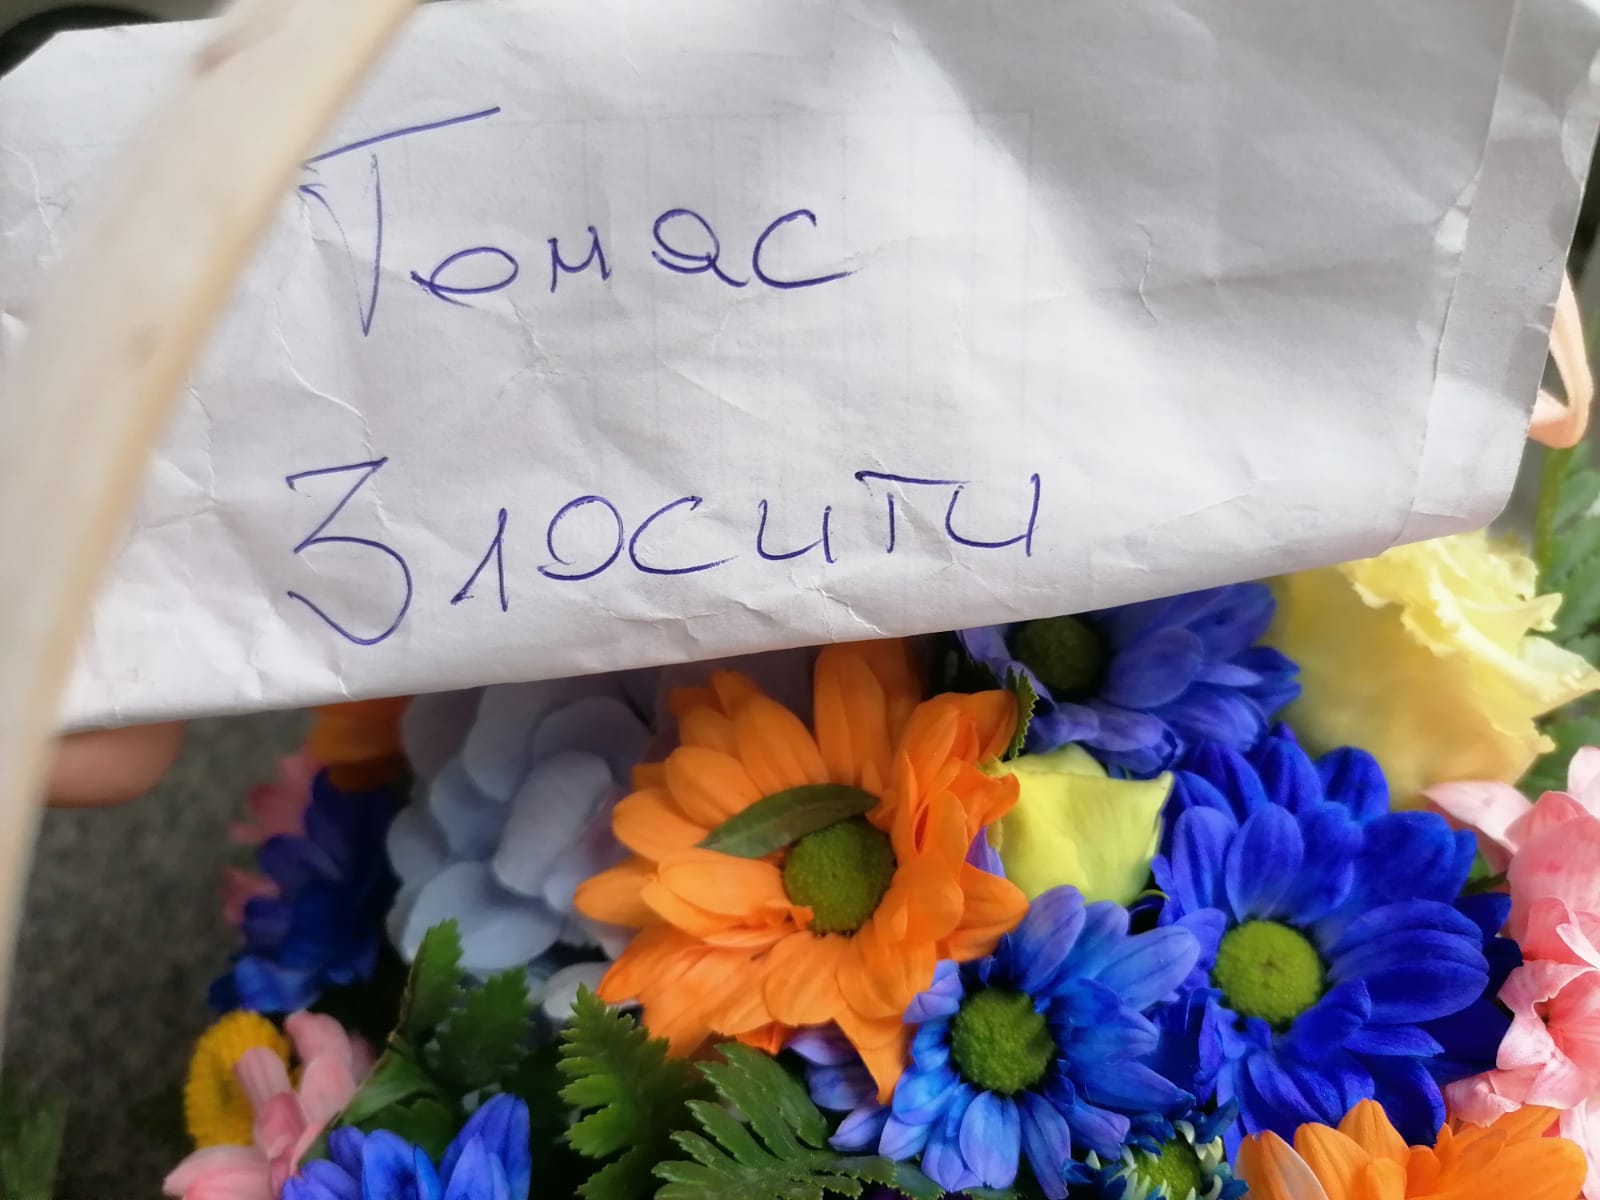 Томас
Злосити